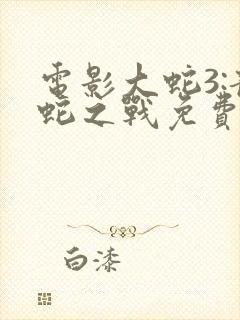 電影大蛇3:
蛇之戰免費
白漆